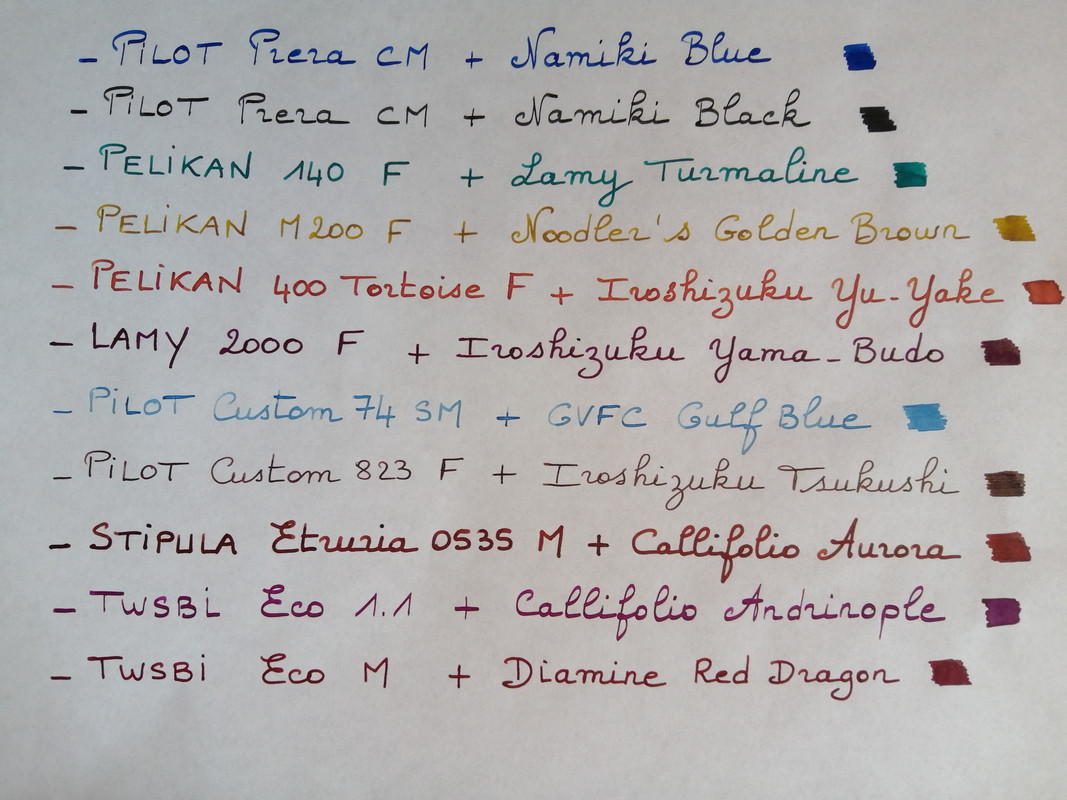 - PiLOT Prera CM + Namiki Blue
- PiLOT Prera CM + Namiki Black
- PELiKAN 140 F + Lamy Turmaline
- PELiKAN M200 F + Noodler's Golden Brown
- PELiKAN 400 Tortoise F + Iroshizuku Yu-Yake
- LAMY 2000 F + Iroshizuku Yama-Budo
- PiLOT Custom 74 SM + GVFC Gulf Blue
- PiLOT Custom 823 F + Iroshizuku Tsukushi
- STiPULA Etruria 0535 M + Callifolio Aurora
- TWSBi Eco 1.1 + Callifolio Andrinople
- TWSBi Eco M + Diamine Red Dragon